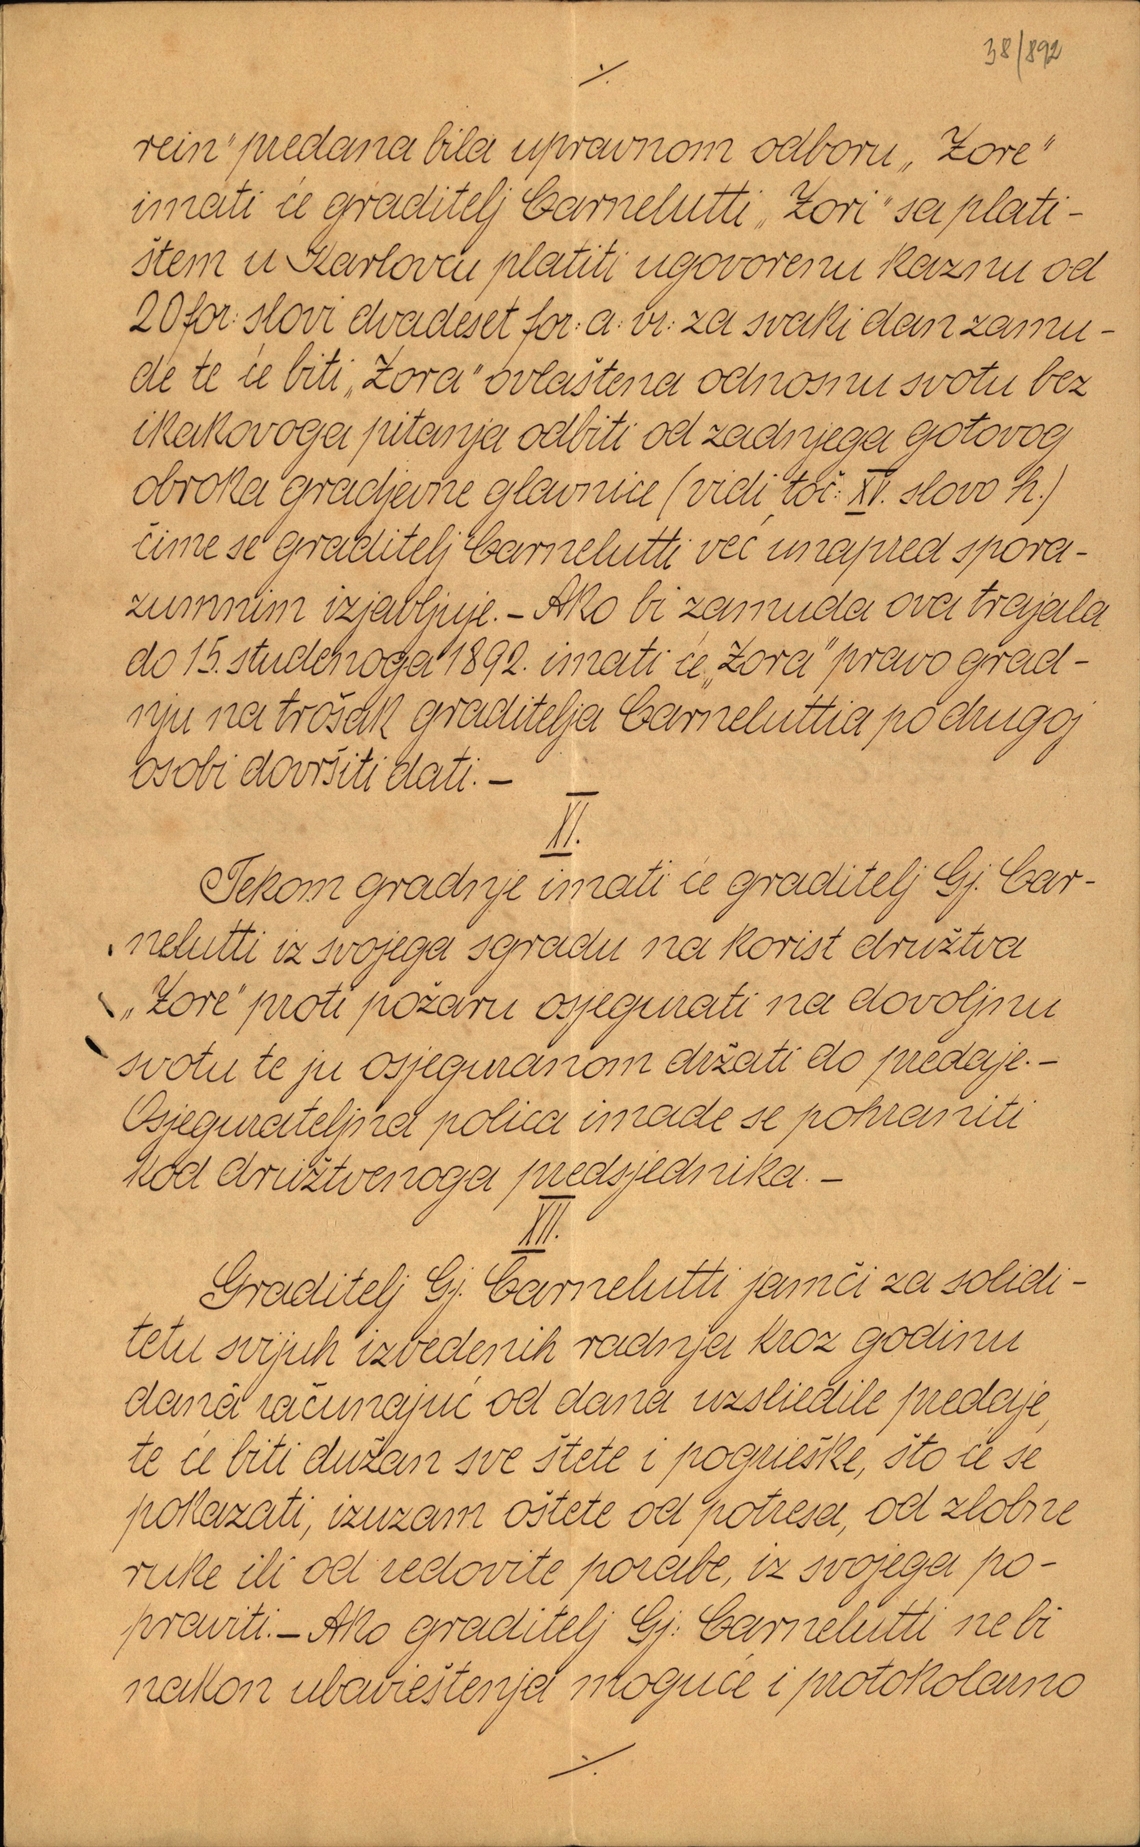 38/892
./.
rein" predana bila upravnom odboru „Zore"
imati će graditelj Carnelutti „Zori" sa plati-
štem u Karlovcu platiti ugovorenu kaznu od
20 for: slovi dvadeset for: a: vr: za svaki dan zamu-
de te će biti „Zora" ovlaštena odnosnu svotu bez
ikakovoga pitanja odbiti od zadnjega gotovog
obroka gradjevne glavnice (vidi toč: XV. slovo h.)
čime se graditelj Carnelutti već unapred spora-
zumnim izjavljuje. – Ako bi zamuda ova trajala
do 15. studenoga 1892. imati će „Zora" pravo grad-
nju na trošak graditelja Carneluttia po drugoj
osobi dovršiti dati. –
XI.
Tekom gradnje imati će graditelj Gj. Car-
nelutti iz svojega sgradu na korist družtva
„Zore" proti požaru osjegurati na dovoljnu
svotu te ju osjeguranom držati do predaje. –
Osjegurateljna polica imade se pohraniti
kod družtvenoga predsjednika. –
XII.
Graditelj Gj. Carnelutti jamči za solidi-
tetu svijuh izvedenih radnja kroz godinu
danâ računajuć od dana uzsliedile predaje,
te će biti dužan sve štete i pogrieške, što će se
pokazati, izuzam oštete od potresa, od zlobne
ruke ili od redovite porabe, iz svojega po-
praviti. – Ako graditelj Gj: Carnelutti ne bi
nakon ubavieštenja moguće i protokolarno
./.